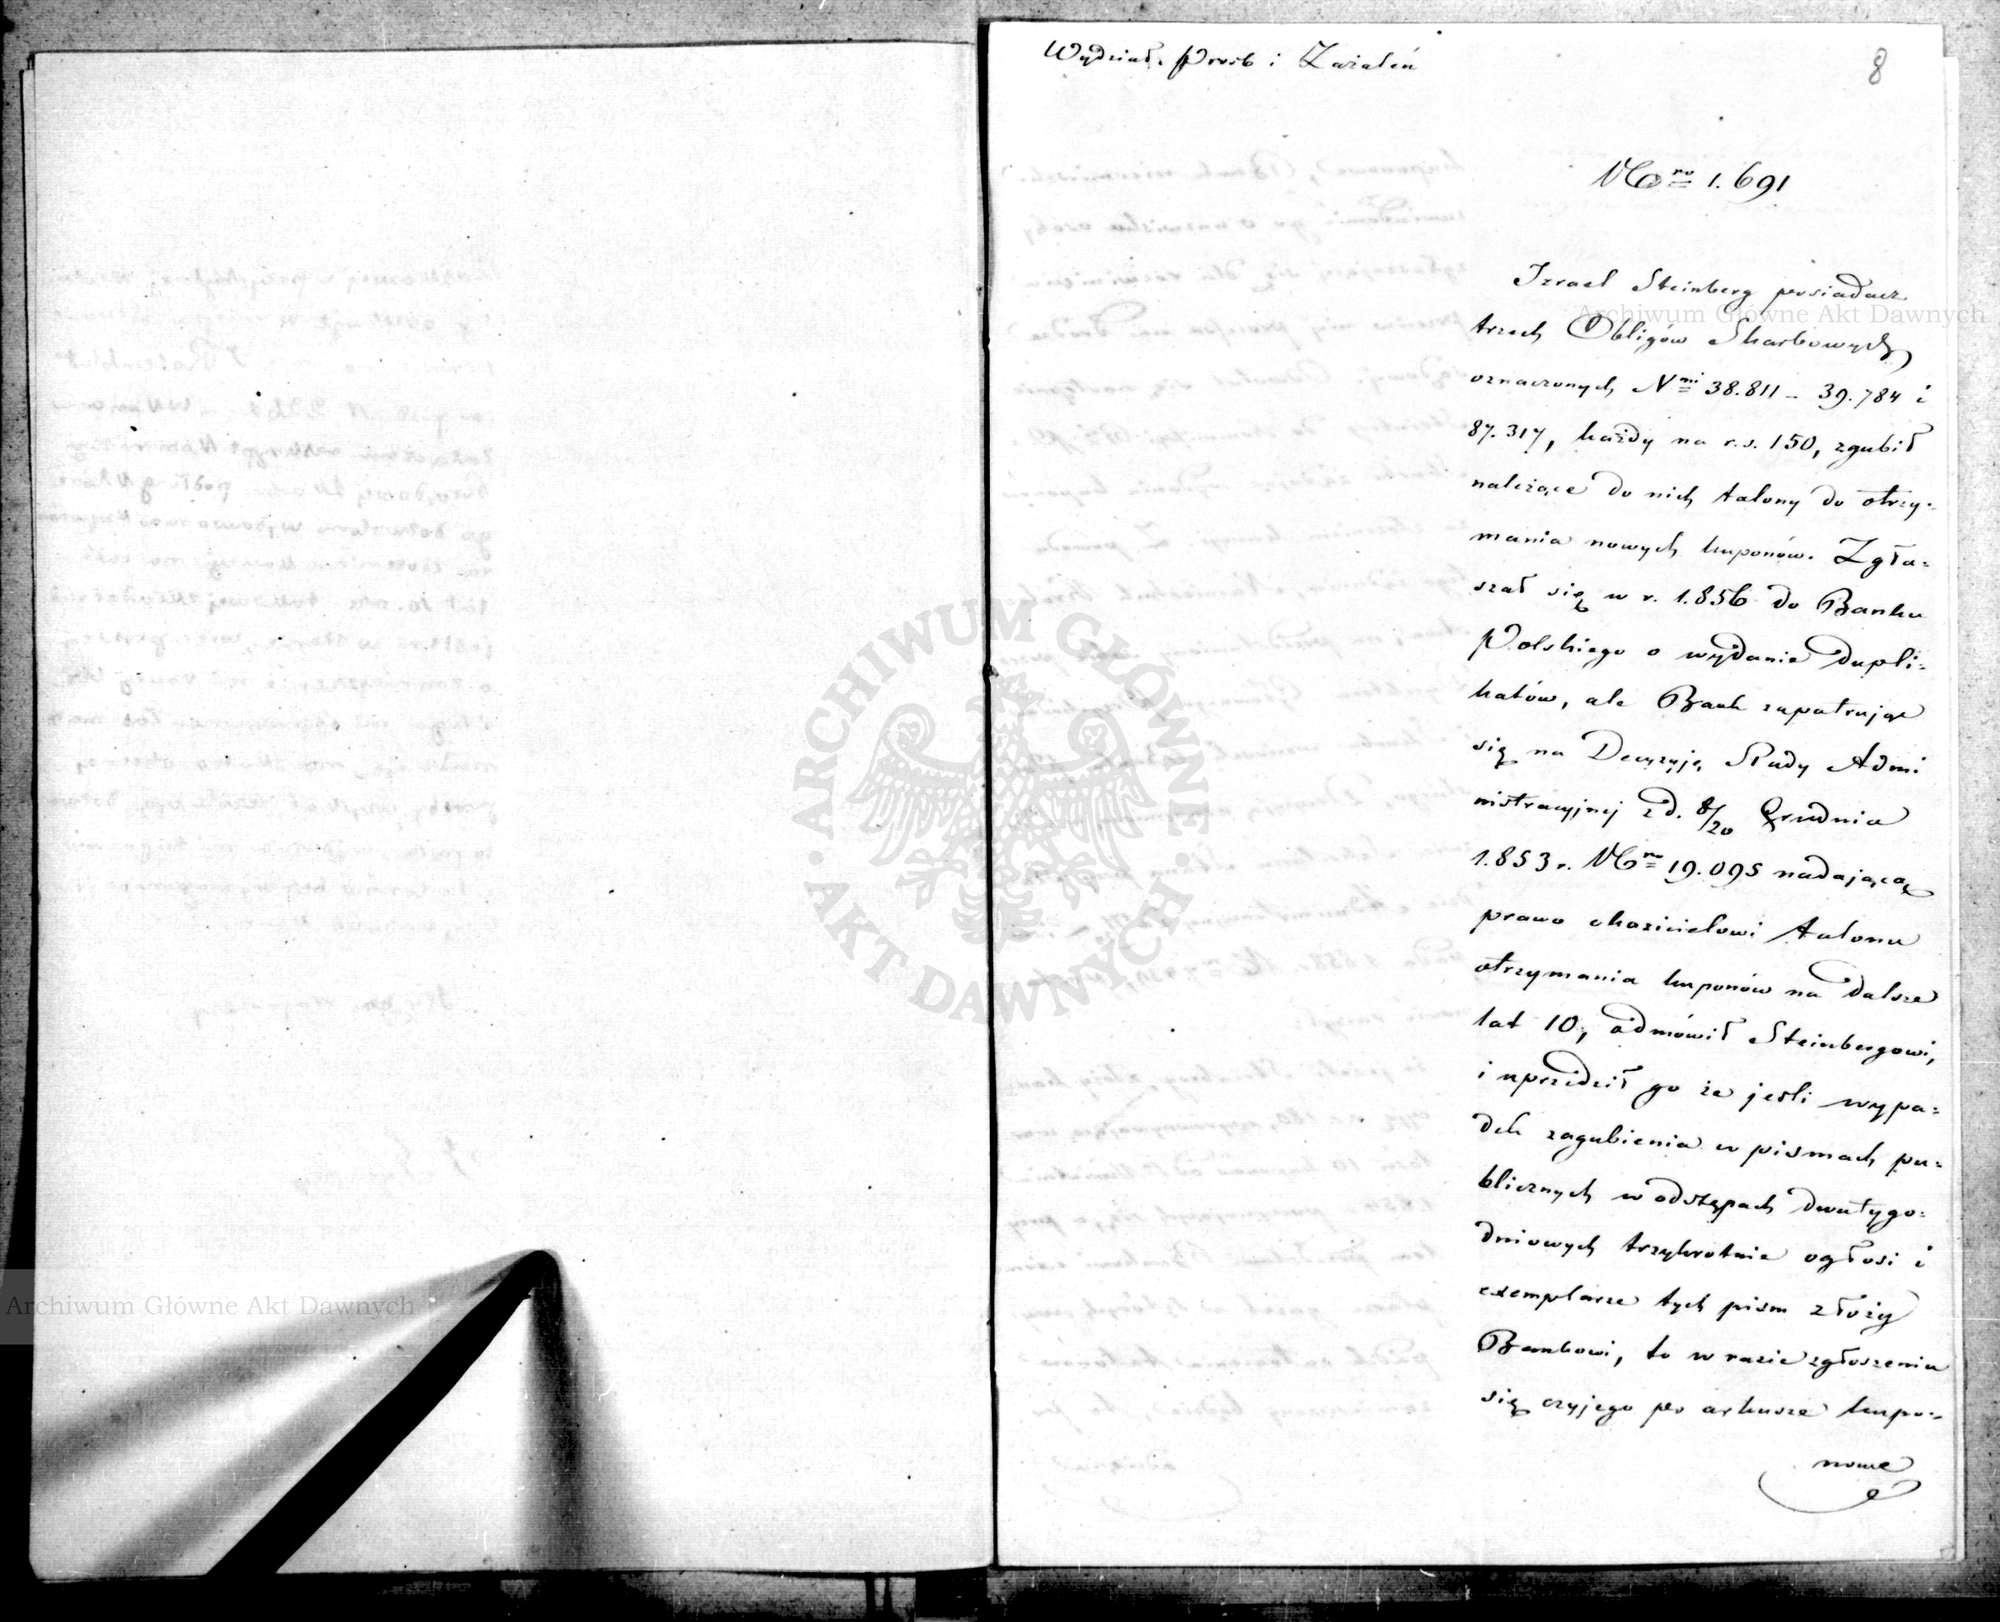 Wydział Prośb i Zażaleń
8
Nro 1.691
Izrael Steinberg posiadacz
trzech Obligów Skarbowych
oznaczonych Nmi 38.811 – 39.784 i
87.317, każdy na r.s. 150, zgubił
należące do nich talony do otrzy-
mania nowych kuponów. Zgła-
szał się w r. 1.856 do Banku
Polskiego o wydanie dupli-
katów, ale Bank zapatrując
się na Decyzyję Rady Admi
nistracyjnej z d. 8/20 Grudnia
1.853 r. Nro 19.095 nadającą
prawo okazicielowi talonu
otrzymania kuponów na dalsze
lat 10, odmówił Steinbergowi,
i uprzedził go że jeśli wypa-
dek zagubienia w pismach pu-
blicznych w odstępach dwutygo-
dniowych trzykrotnie ogłosi i
exemplarze tych pism złoży
Bankowi, to w razie zgłoszenia
się czyjego po arkusze kupo-
nowe
Archiwum Główne Akt Dawnych
Archiwum Główne Akt Dawnych
ARCHIWUM GŁÓWNE
AKT DAWNYCH